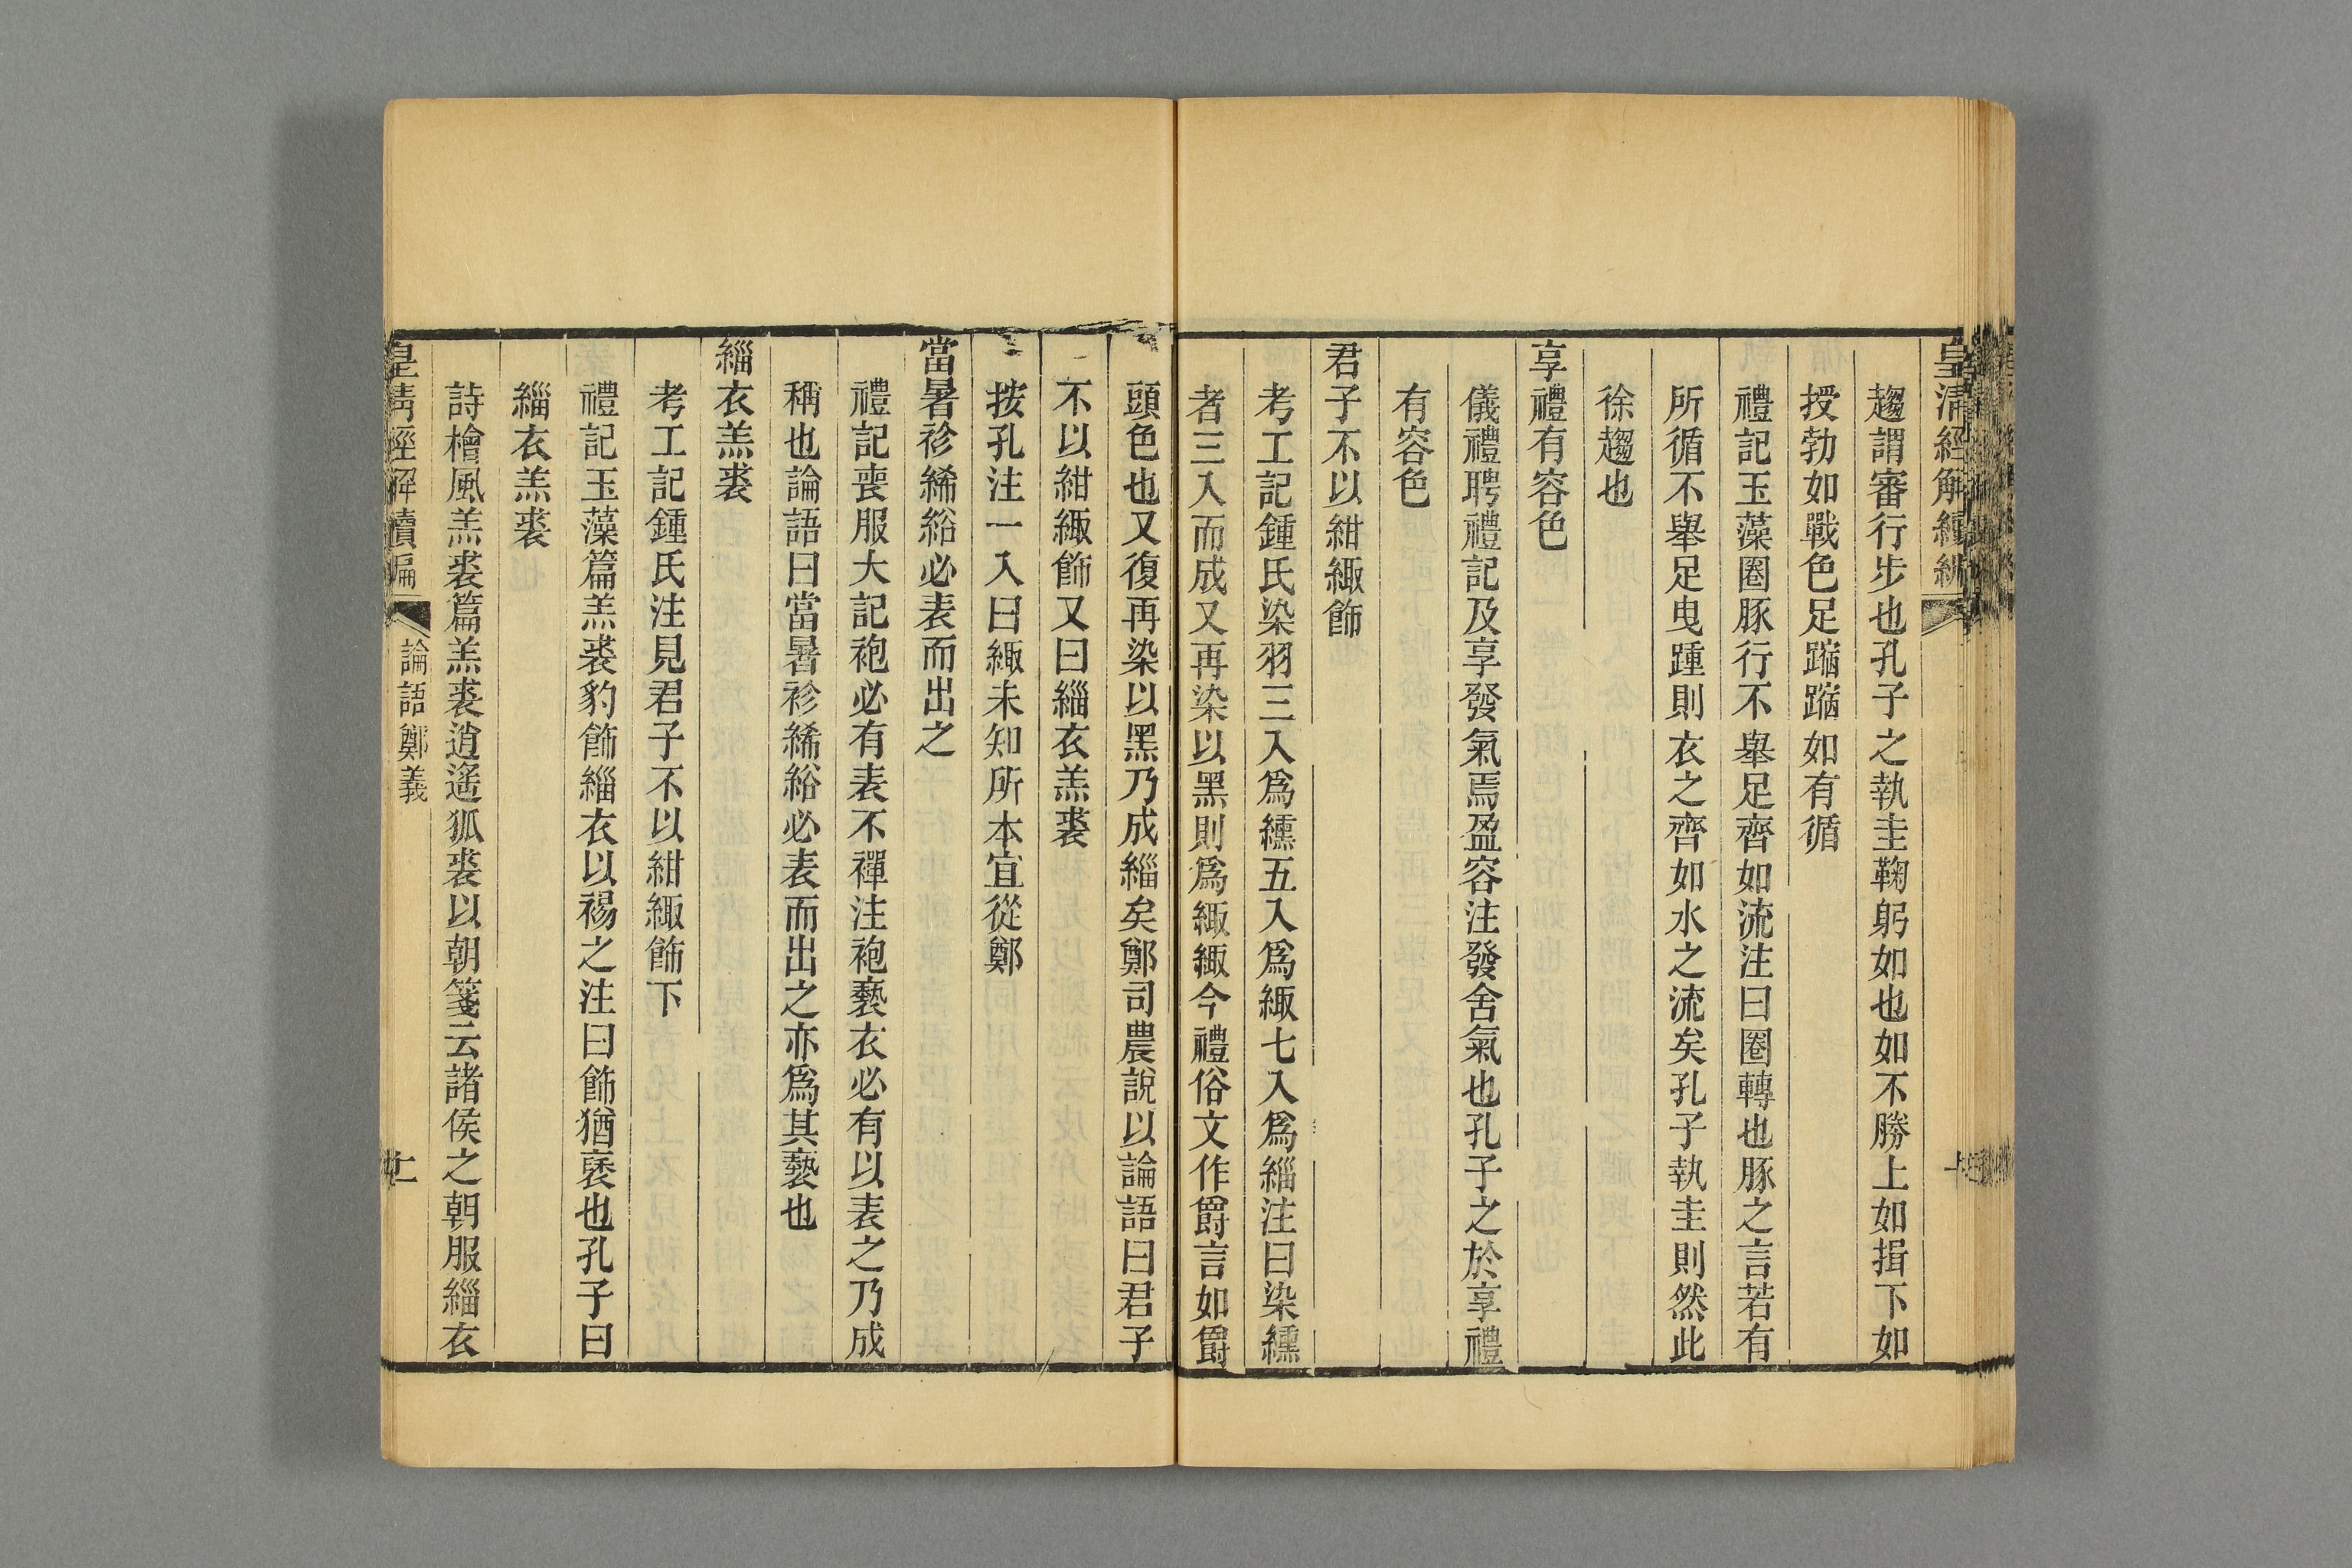 皇清經解續編
趨謂審行步也孔子之執圭鞠躬如也如不勝上如揖下如
授勃如戰色足蹜蹜如有循
禮記玉藻圈豚行不舉足齊如流注曰圈轉也豚之言若有
所循不舉足曳踵則衣之齊如水之流矣孔子執圭則然此
徐趨也
享禮有容色
儀禮聘禮記及享發氣焉盈容注發舍氣也孔子之於享禮
有容色
君子不以紺緅飾
考工記鍾氏染羽三入爲纁五入爲緅七入爲緇注曰染纁
者三入而成又再染以黑則爲緅緅今禮俗文作爵言如爵
頭色也又復再染以黑乃成緇矣鄭司農說以論語曰君子
不以紺緅飾又曰緇衣羔裘
按孔注一入曰緅未知所本宜從鄭
當暑袗絺綌必表而出之
禮記喪服大記袍必有表不襌注袍褻衣必有以表之乃成
稱也論語曰當暑袗絺綌必表而出之亦爲其褻也
緇衣羔裘
考工記鍾氏注見君子不以紺緅飾下
禮記玉藻篇羔裘豹飾緇衣以裼之注曰飾猶褎也孔子曰
緇衣羔裘
詩檜風羔裘篇羔裘逍遙狐裘以朝箋云諸侯之朝服緇衣
皇清經解續編
論語鄭義